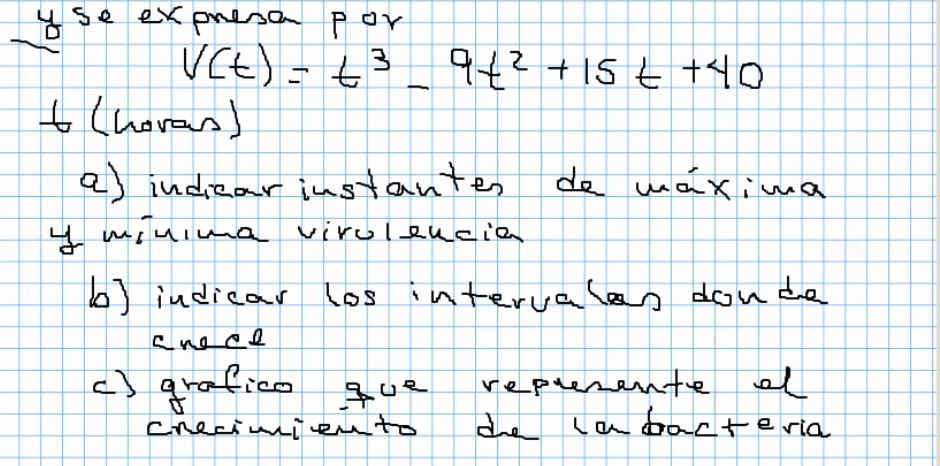 y se expresa por
V(t) = t³ - 9t² + 15t + 40
t (horas)
a) indicar instantes de máxima
y mínima virulencia
b) indicar los intervalos donde
crece
c) grafico que represente el
crecimiento de la bacteria